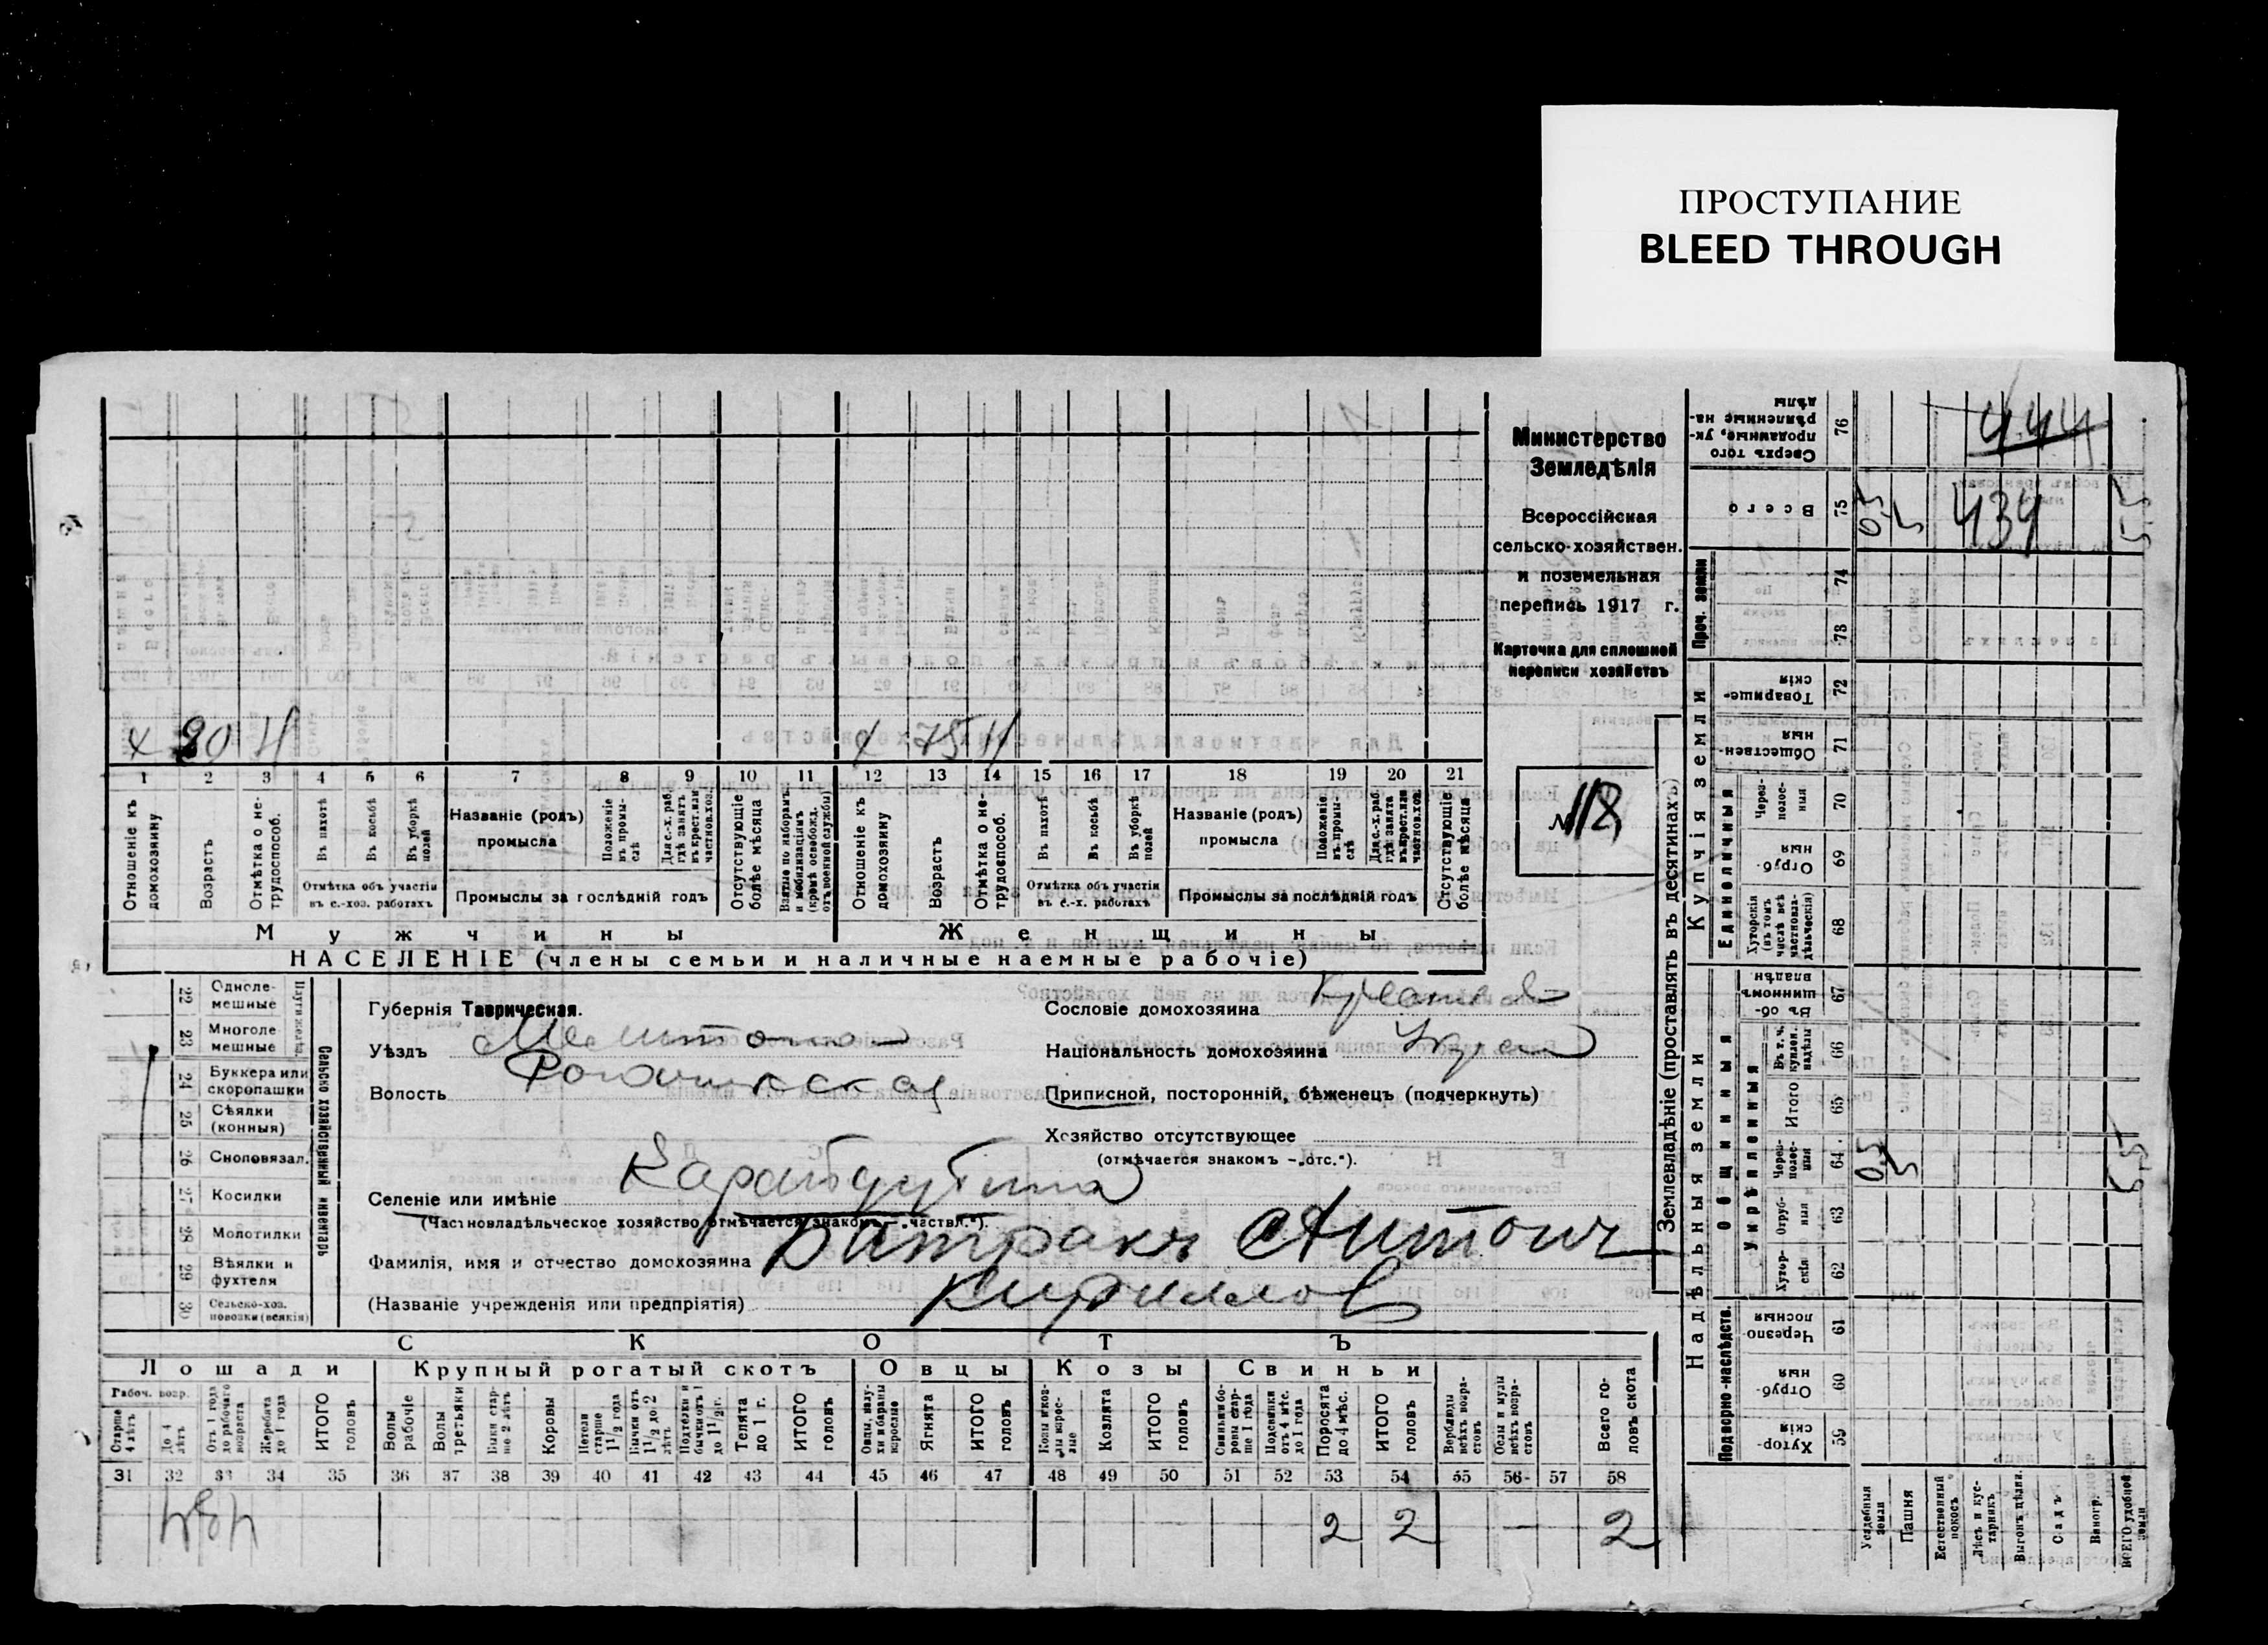 ПРОСТУПАНИЕ
BLEED THROUGH
Министерство
Земледѣлія
Всероссійская
сельско-хозяйствен.
и поземельная
перепись 1917 г.
Карточка для сплошной
переписи хозяйствъ
№ 118
х 80 Н х 75 Н
1 2 3 4 5 6 7 8 9 10 11 12 13 14 15 16 17 18 19 20 21
Отношеніе къ домохозяину
Возрастъ
Отмѣтка о не-трудоспособ.
Въ пахотѣ
Въ косьбѣ
Въ уборкѣ полей
Отмѣтка объ участіи въ с.-хоз. работахъ
Названіе (родъ) промысла
Положеніе въ промы-слѣ
Для с.-х. раб. гдѣ занятъ въ крест. или частнов. хоз.
Промыслы за послѣдній годъ
Отсутствующіе болѣе мѣсяца
Взятые по наборамъ и мобилизаціямъ (кромѣ освобожд. отъ военной службы)
Отношеніе къ домохозяину
Возрастъ
Отмѣтка о не-трудоспособ.
Въ пахотѣ
Въ косьбѣ
Въ уборкѣ полей
Отмѣтка объ участіи въ с.-х. работахъ
Названіе (родъ) промысла
Положеніе въ промы-слѣ
Для с.-х. раб. гдѣ занята въ крест. или частнов. хоз.
Промыслы за послѣдній годъ
Отсутствующіе болѣе мѣсяца
Мужчины Женщины
НАСЕЛЕНІЕ (члены семьи и наличные наемные рабочіе)
Сельско хозяйственный инвентарь
22 Однолемешные
23 Многолемешные
24 Буккера или скоропашки
25 Сѣялки (конныя)
26 Сноповязал.
27 Косилки
28 Молотилки
29 Вѣялки и фухтеля
30 Сельско-хоз. повозки (всякія)
Губернія Таврическая.
Уѣздъ
Волость
Селеніе или имѣніе
(Частновладѣльческое хозяйство отмѣчается знакомъ – „частвл.“).
Фамилія, имя и отчество домохозяина Батракъ Антонъ
(Названіе учрежденія или предпріятія) Кириллов
Сословіе домохозяина
Національность домохозяина
Приписной, посторонній, бѣженецъ (подчеркнуть)
Хозяйство отсутствующее
(отмѣчается знакомъ – „отс.“).
СКОТЪ
Лошади Крупный рогатый скотъ Овцы Козы Свиньи
Рабоч. возр.
Старше 4 лѣтъ
До 4 лѣтъ
Отъ 1 года до рабочаго возраста
Жеребята до 1 года
ИТОГО головъ
Волы рабочіе
Волы третьяки
Быки стар-ше 2 лѣтъ
Коровы
Нетели старше 1 1/2 года
Бычки отъ 1 1/2 до 2 лѣтъ
Подтелки и бычки отъ 1 до 1 1/2 г.
Телята до 1 г.
ИТОГО головъ
Овцы, валу-хи и бараны взрослые
Ягнята
ИТОГО головъ
Козы и коз-лы взрос-лые
Козлята
ИТОГО головъ
Свиньи и бо-ровы стар-ше 1 года
Подсвинки отъ 4 мѣс. до 1 года
Поросята до 4 мѣс.
ИТОГО головъ
Верблюды всѣхъ возра-стовъ
Ослы и мулы всѣхъ возра-стовъ
Всего го-ловъ скота
31 32 33 34 35 36 37 38 39 40 41 42 43 44 45 46 47 48 49 50 51 52 53 54 55 56 57 58
2 2 2
Землевладѣніе (проставлять въ десятинахъ)
Надѣльныя земли Купчія земли Проч. земли
Подворно-наслѣдств.
Общинныя
Укрѣпленныя
Единоличныя
Хутор-скія 59
Отруб-ныя 60
Черезпо-лосныя 61
Хутор-скія 62
Отруб-ныя 63
Через-полос-ныя 64
Итого 65
Въ т. ч. куплен. надѣлы 66
Въ об-щинномъ владѣн. 67
Хуторскія (въ томъ числѣ всѣ частновла-дѣльческія) 68
Отруб-ныя 69
Через-полос-ныя 70
Обществен-ныя 71
Товарище-скія 72
73
74
Всего 75
Сверхъ того проданные, ук-рѣпленные на-дѣлы 76
Усадебныя земли
Пашня
Естественный покосъ
Лѣсъ и кус-тарникъ
Выгонъ цѣлин.
Садъ
Виногр.
ВСЕГО удобной земли
0,5 5 5,5
0,5 5 434 5,5
444